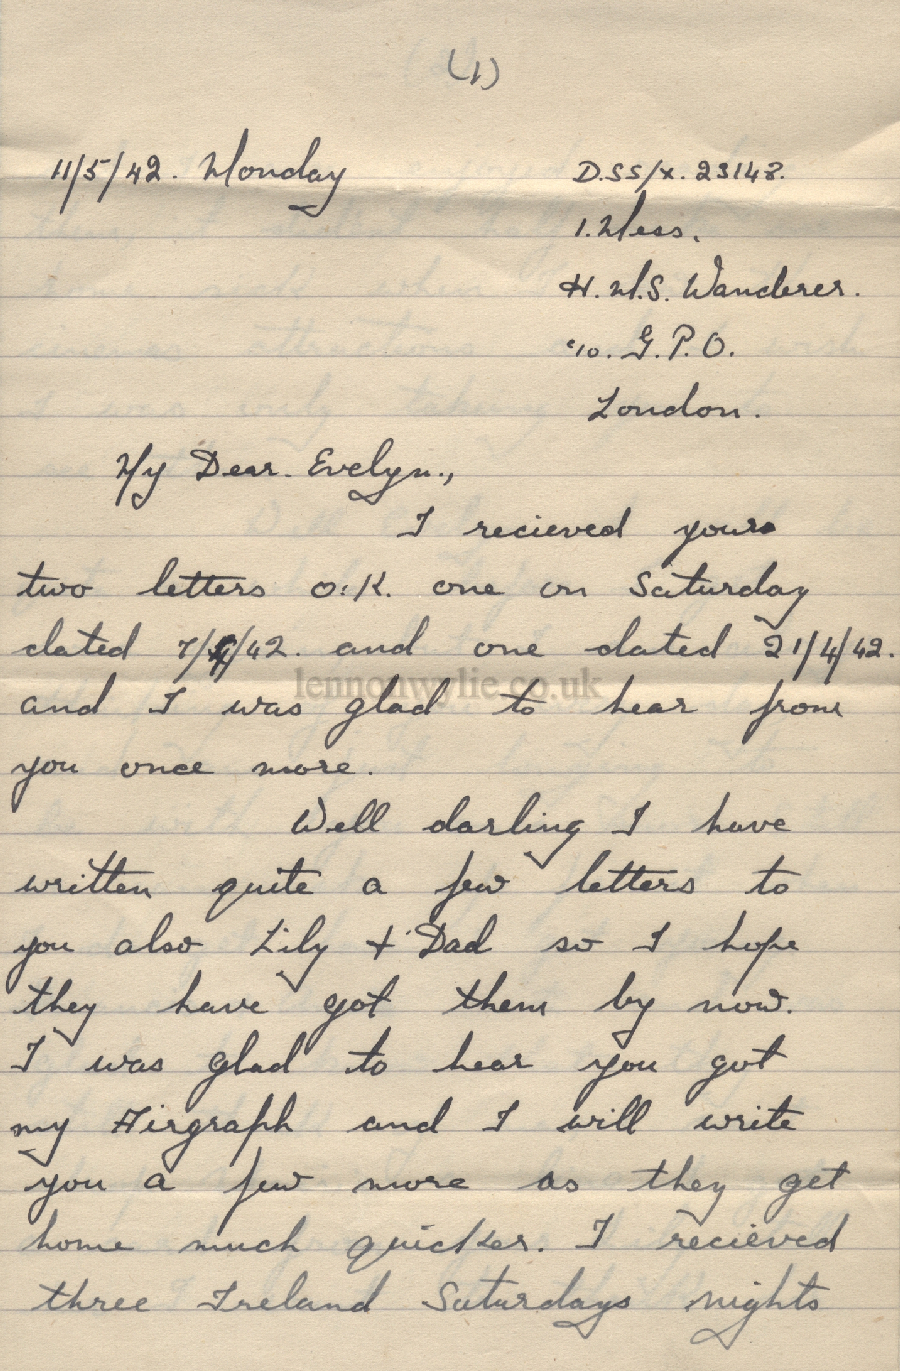 (1)
11/5/42. Monday
D.SS/X. 23148.
1. Mess.
H.M.S. Wanderer.
c/o. G.P.O.
London.
My Dear. Evelyn.,
I recieved yours
two letters O.K. one on Saturday
dated 7/4/42. and one dated 21/4/42.
lennonwylie.co.uk
and I was glad to hear from
you once more.
Well darling I have
written quite a few letters to
you also Lily + Dad so I hope
they have got them by now.
I was glad to hear you got
my Airgraph and I will write
you a few more as they get
home much quicker. I recieved
three Ireland Saturdays nights